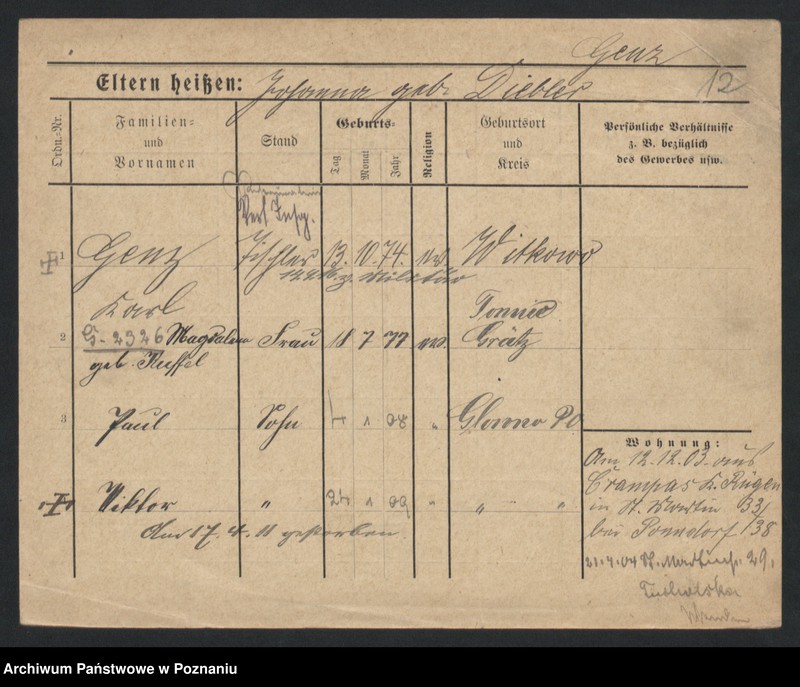 Genz
Eltern heißen: Johanna geb. Diebler 12
Ordn.-Nr.
Familien- und Vornamen
Stand
Geburts-
Tag
Monat
Jahr
Religion
Geburtsort und Kreis
Persönliche Verhältnisse
z. B. bezüglich
des Gewerbes usw.
1 Genz Tischler 13. 10. 74. ev Witkowo
Karl
2 G-2326 Magdalena Frau 18 7 77 ev Grätz
geb. Ruffel
3 Paul Sohn 1 08 " Glowno PO
Wohnung:
Am 12.12.03 aus
Crampas K. Rügen
in St. Martin 33/
bei Ponndorf /38
Viktor " 24 1 09 " " "
Am 17. 4. 11 gestorben.
21.4.04 St. Martinstr. 29.
Archiwum Państwowe w Poznaniu